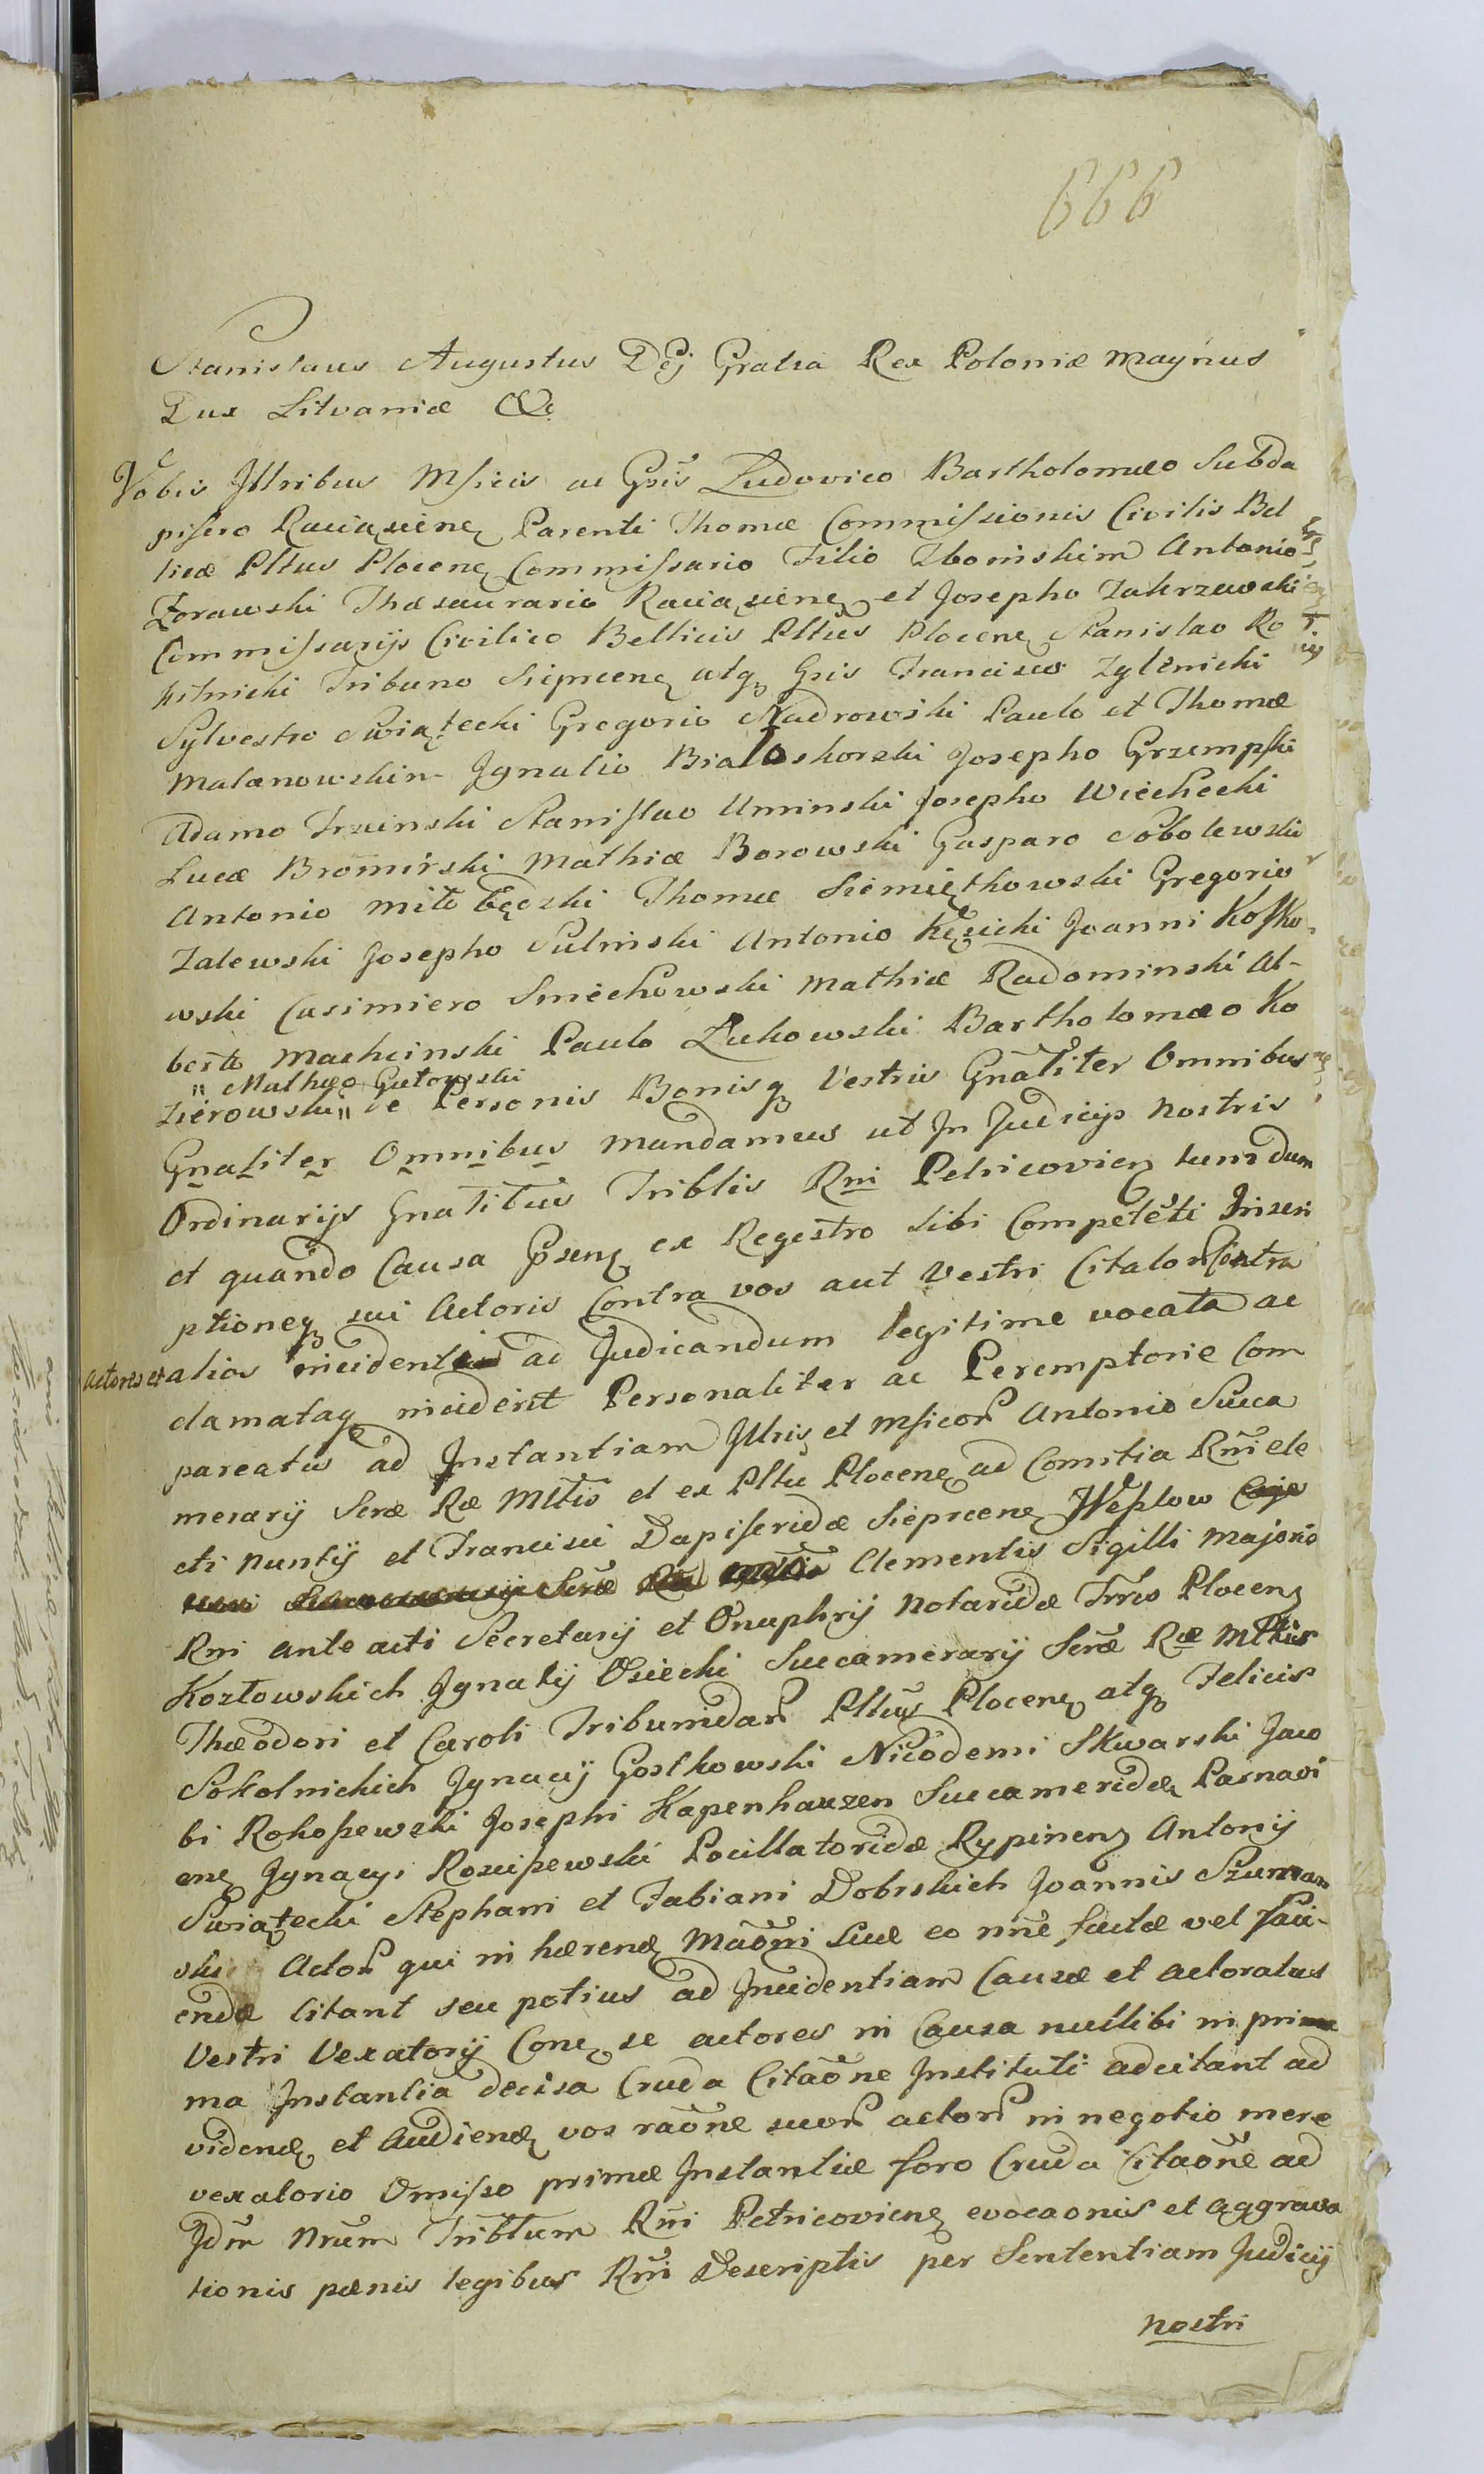 666
Stanislaus Augustus Dej Gratia Rex Poloniæ Magnus
Dux Litvaniæ &c
Vobis Jllribus Mficis ac Gsis Ludovico Bartholomæo Subda
pifero Raciązienę Parenti Thomæ Commissionis Civilis Bel
licæ Pltus Plocenę Commissario Filio Zboinskim Antonio
Zorawski Thæsaurario Raciązienę et Josepho Zakrzewski
Commissarijs Civilico Bellicis Pltus Plocenę Stanislao Ro
kitnicki Tribuno Sieprcenę atqȝ Gsis Francisco Zglinicki
Sylvestro Swiątecki Gregorio Nadrowski Paulo et Thomæ
Malanowskim Jgnatio Białoskorski Josepho Grzempski
Adamo Trzcinski Stanislao Uminski Josepho Wiechecki
Lucæ Bromirski Mathiæ Borowski Gasparo Sobolewski
Antonio Miłobędzki Thomæ Siemiątkowski Gregorio
Zalewski Josepho Sulinski Antonio Kęsicki Joanni Kossko
wski Casimiero Smiechowski Mathiæ Radominski Al-
berto Machcinski Paulo Łukowski Bartholomæo Ko
" Mathæo Gutowski
zierowski " de Personis Bonisqȝ Vestris Gnaliter Omnibus
Gnaliter Omnibus mandamus ut Jn Judicijs nostris
Ordinarijs Gnalibus Triblis Rni Petricovienȝ tunc dum
et quando Causa Psenȝ ex Regestro sibi Competēti Jnscri
ptioneqȝ sui Actoris Contra vos aut Vestri Citator Contra
Actores et alios incidenti ad Judicandum legitime vocata ac
clamataqȝ inciderit Personaliter ac Peremptorie Com
pareatis ad Jnstantiam Jllris et Mficor Antonio Succa
merarij Sræ Ræ Mttis et ex Pltu Plocenȝ ad Comitia Rni ele
cti Nuntij et Francisci Dapiferidæ Sieprcenę
Clementis Sigilli Majoris
Rni ante acti Secretarij et Onuphrij Notaridæ Trris Plocenȝ
Kozłowskich Jgnatij Osiecki Succamerarij Sræ Ræ Mttis
Thæodori et Caroli Tribunidar Pltus Plocenȝ atqȝ Felicis
Sokolnickich Jgnacij Gostkowski Nicodemi Skwarski Jaco
bi Rokoszewski Josephi Kapenhauzen Succameridæ Parnavi
enȝ Jgnacyi Rosciszewski Pocillatoridæ Rypinenȝ Antonij
Swiątecki Stephani et Fabiani Dobrskich Joannis Szuman
ski Actor qui in hærendȝ Maōni suæ eo nne factæ vel faci-
endæ Citant seu potius ad Jncidentiam Causæ et actoratus
Vestri Vexatorij Conȝ se actores in Causa nullibi in pri
ma Jnstantia decisa Cruda Citaōne Jnstituti adcitant ad
videndȝ et Audiendȝ vos raōne suor actor in negotio mere
vexatorio Omisso primæ Jnstantiæ foro Cruda Citaōne ad
Jdm Nrum Tribtum Rni Petricovienȝ evocaonis et aggrava
tionis pænis legibus Rni Descriptis per Sententiam Judicij
nostri